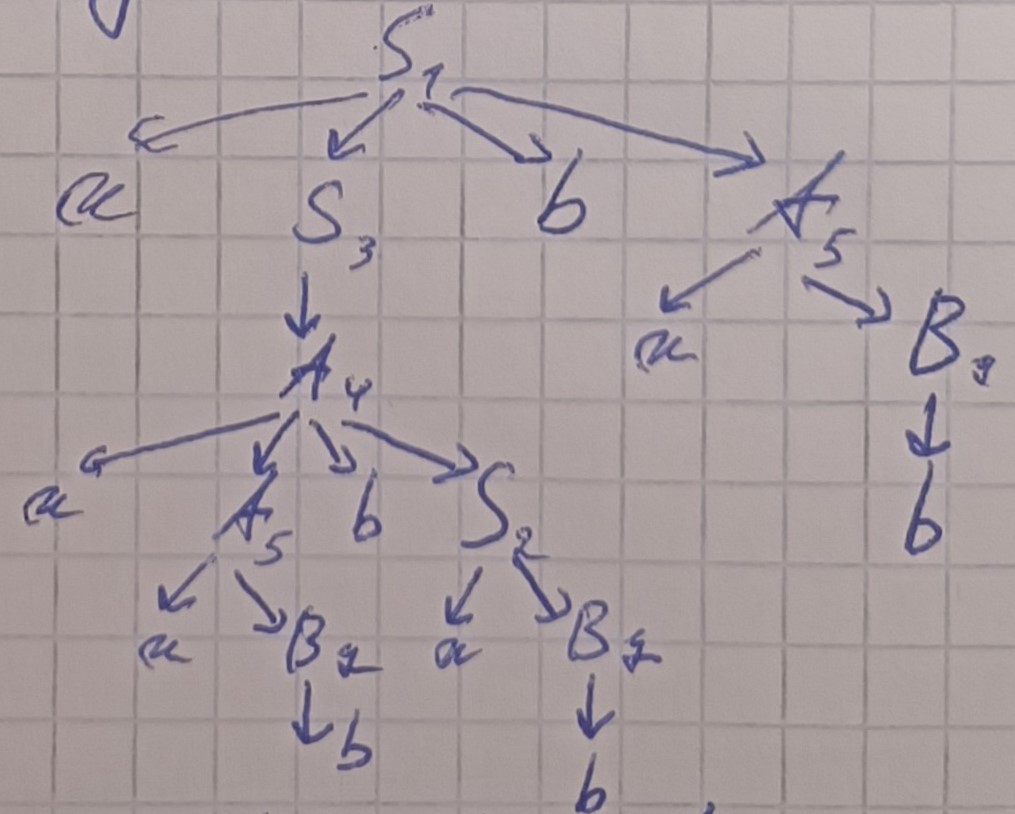 S₁
a S₃ b A₅
a B₉
A₄
a A₅ b S₂
b
a B₉ a B₉
b
b